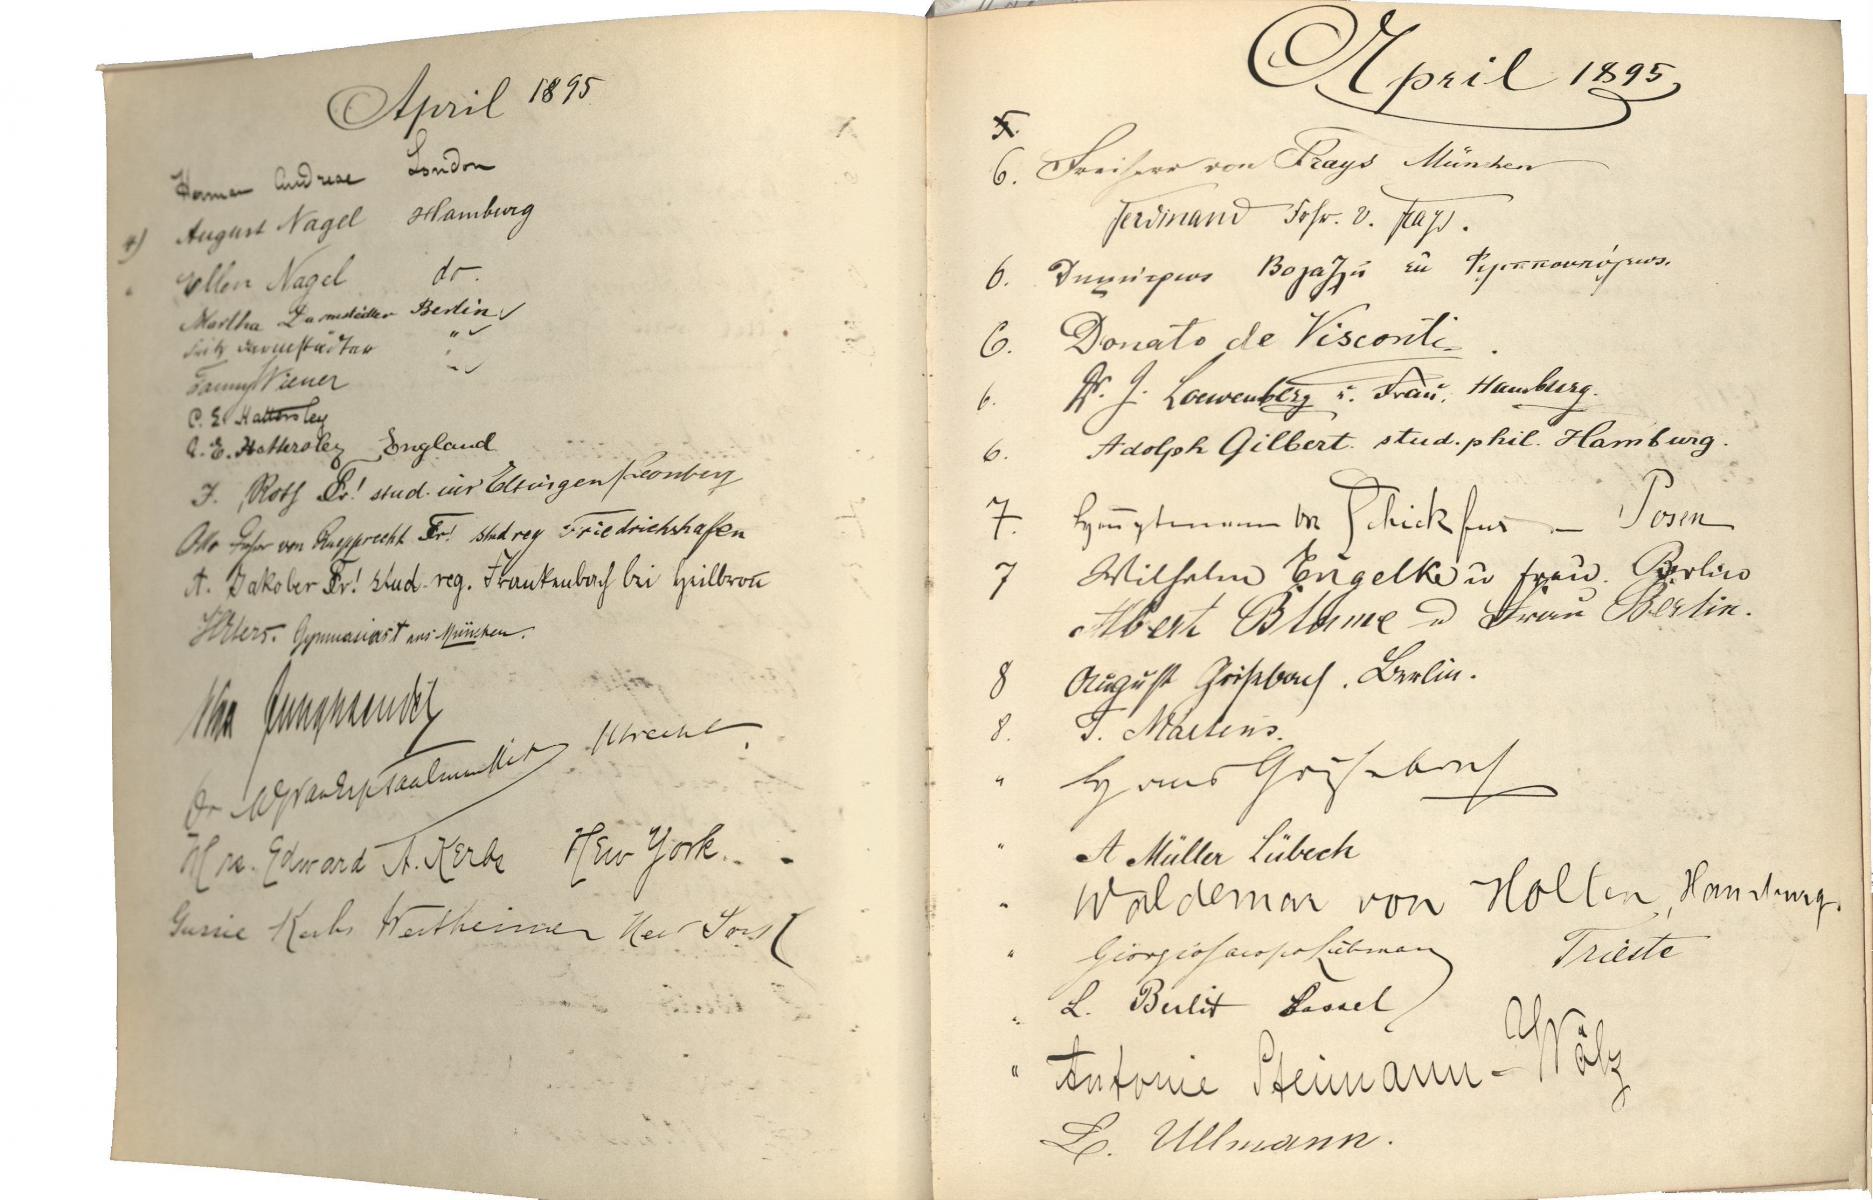 April 1895
Herman Andreae London
4) August Nagel Hamburg
" Ellen Nagel do.
Martha Darmstädter Berlin ✓
Fritz Darmstädter " ✓
Fanny Wiener " ✓
C. E. Hattersley
A. E. Hattersley England
F. Roth Fr! stud. Eltingen/Leonberg
Otto Frhr von Ruepprecht Fr! stud reg Friedrichshafen
A. Jakober Fr! stud. reg. Frankenbach bei Heilbronn
Gymnasiast aus München.
Dr Utrecht.
Mrs. Edward A. Kerbs New York.
Gussie Kerbs Wertheimer New York
April 1895
5.
6. Freiherr von Frays München
Ferdinand Frhr. v. Frays.
6. Δημήτριος
6. Donato de Visconti.
6. Dr. J. Loewenberg u. Frau, Hamburg.
6. Adolph Gilbert. stud. phil. Hamburg.
7. Hauptmann von Schickfus – Posen
7 Wilhelm Engelke u Frau. Berlin
Albert Blume u Frau Berlin.
8 August Grisebach. Berlin.
8. T. Martens.
" Hans Grisebach
" A Müller Lübeck
" Waldemar von Holten, Hamburg.
" Giorgio Jacopo Lübman Trieste
" L. Berlit Cassel
" Antonie Steimann-Wölz
L. Ullmann.